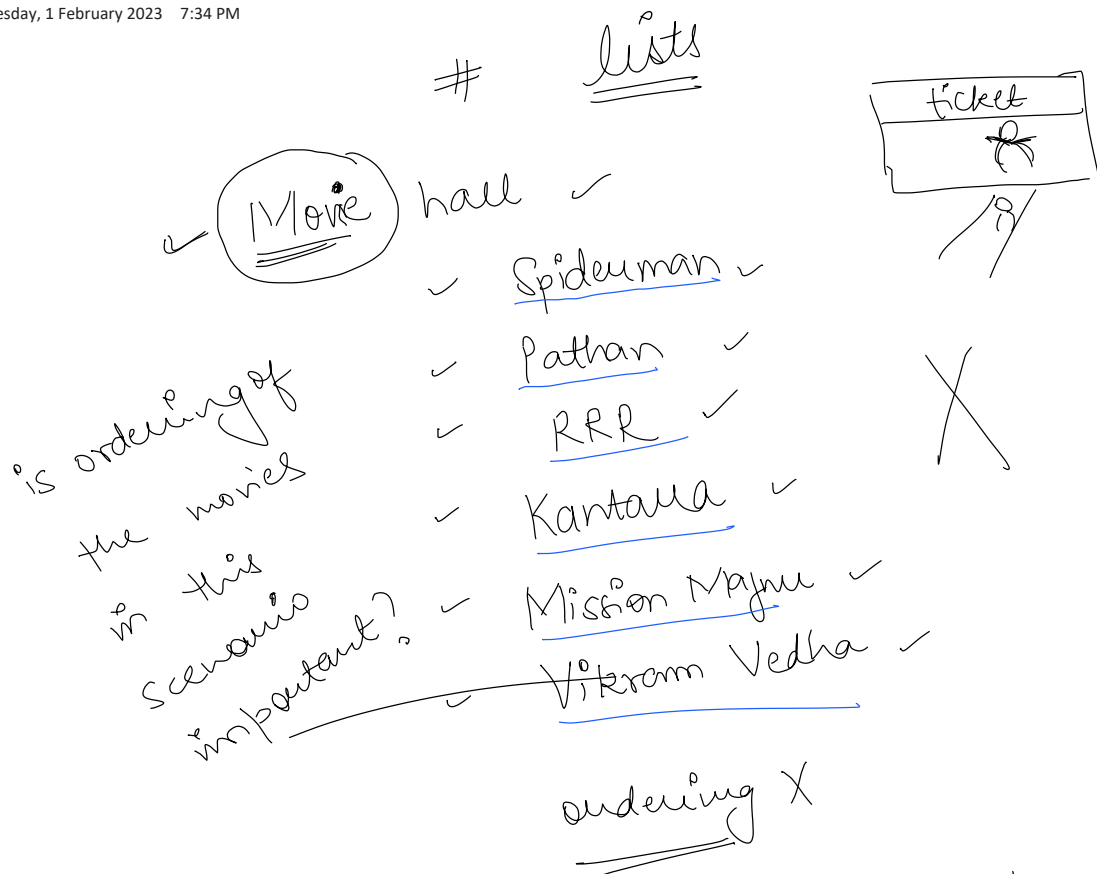 esday, 1 February 2023 7:34 PM
# lists
ticket
Movie hall ✓
✓ Spiderman ✓
✓ Pathan ✓
✓ RRR ✓
✓ Kantara ✓
✓ Mission Majnu ✓
✓ Vikram Vedha ✓
is ordering of
the movies
in this
scenario
important?
ordering X